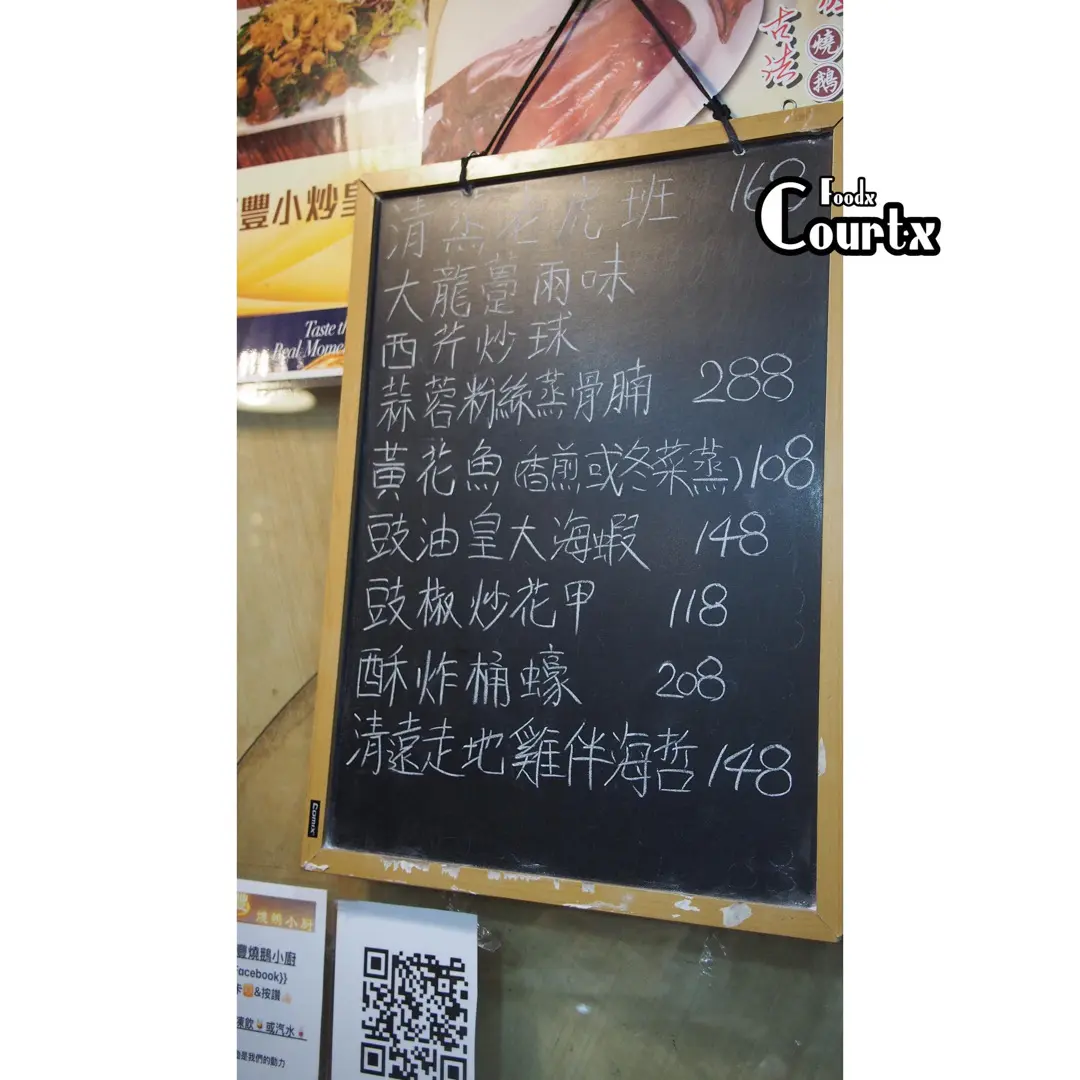 古法
燒鵝
豐小炒皇
Taste th
Real Mome
Foodx
Courtx
清蒸老虎班 168
大龍躉兩味
西芹炒球
蒜蓉粉絲蒸骨腩 288
黃花魚(香煎或冬菜蒸)108
豉油皇大海蝦 148
豉椒炒花甲 118
酥炸桶蠔 208
清遠走地雞伴海哲 148
Comix
燒鵝小厨
豐燒鵝小廚
acebook}}
卡&按讚
凍飲或汽水
是我們的動力